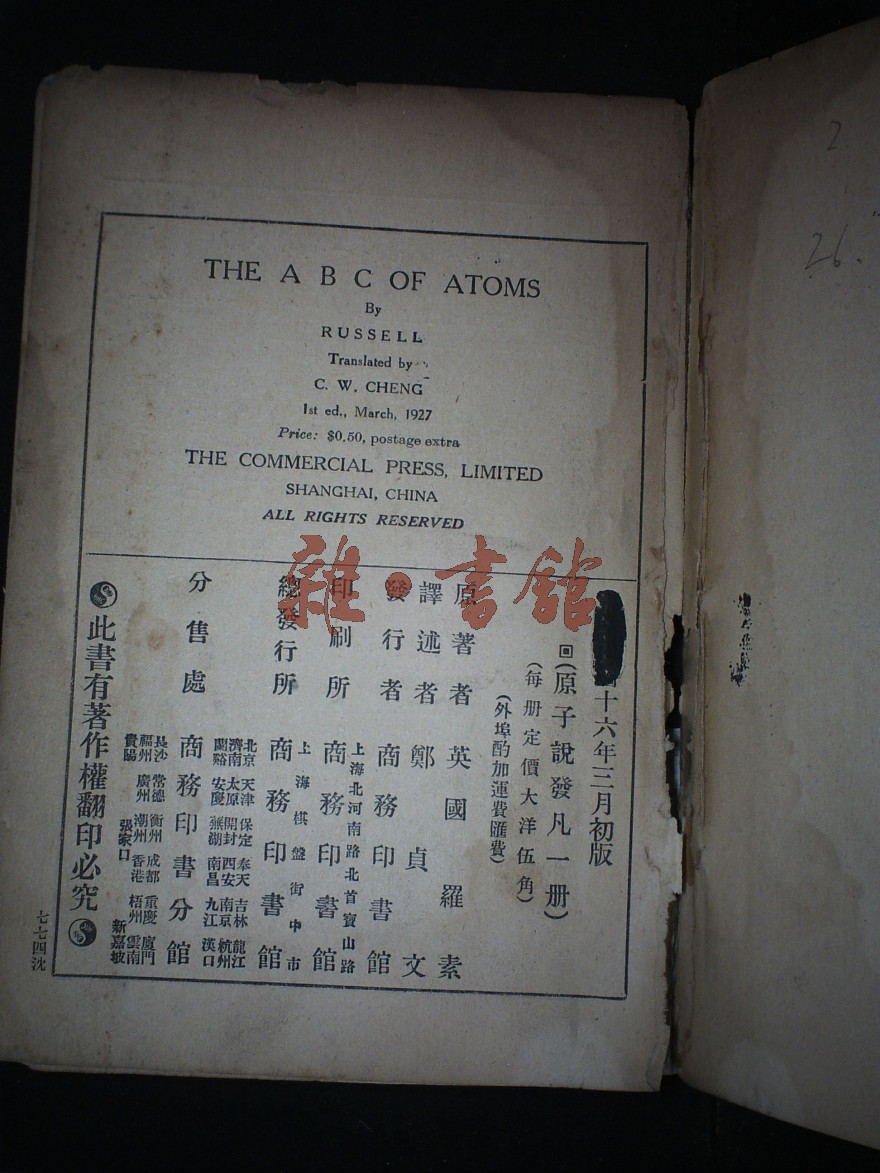 THE A B C OF ATOMS
By
RUSSELL
Translated by
C. W. CHENG
1st ed., March, 1927
Price: $0.50, postage extra
THE COMMERCIAL PRESS, LIMITED
SHANGHAI, CHINA
ALL RIGHTS RESERVED
雜·書館
十六年三月初版
回(原子說發凡一册)
(每册定價大洋伍角)
(外埠酌加運費匯費)
原著者 英國羅素
譯述者 鄭貞文
發行者 商務印書館
印刷所 上海北河南路北首寶山路 商務印書館
總發行所 上海棋盤街中市 商務印書館
分售處 商務印書分館
北京 天津 保定 奉天 吉林 龍江
濟南 太原 開封 西安 南京 杭州
蘭谿 安慶 蕪湖 南昌 九江 漢口
長沙 常德 衡州 成都 重慶 廈門
福州 廣州 潮州 香港 梧州 雲南
貴陽 張家口 新嘉坡
此書有著作權翻印必究
七七四沈
2
26.